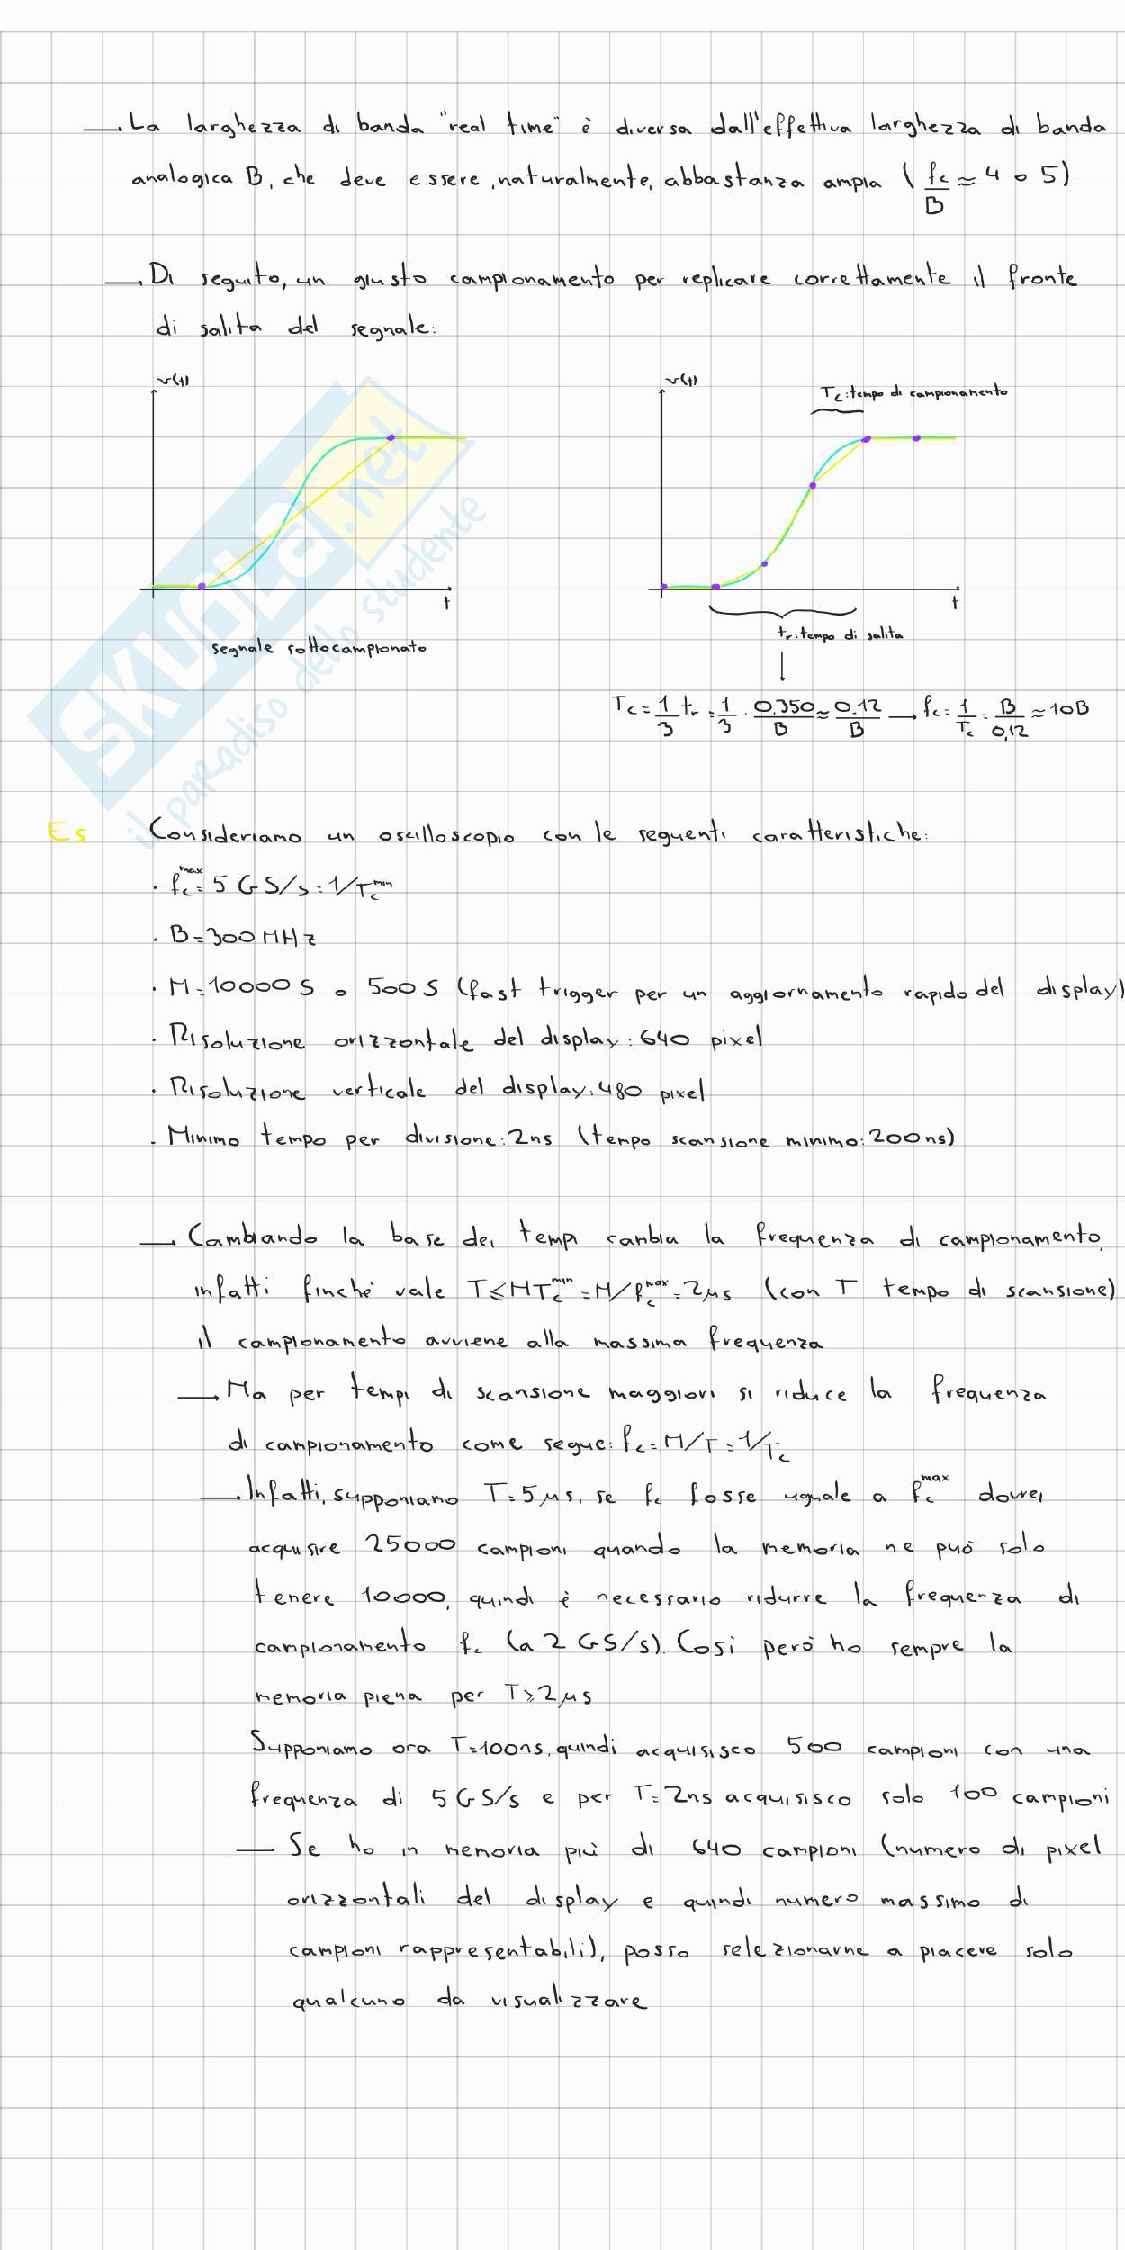 —. La larghezza di banda "real time" è diversa dall'effettiva larghezza di banda
analogica B, che deve essere, naturalmente, abbastanza ampia (fc/B ≈ 4 o 5)
—. Di seguito, un giusto campionamento per replicare correttamente il fronte
di salita del segnale:
v(t)
v(t)
Tc: tempo di campionamento
t
t
tr: tempo di salita
segnale sottocampionato
Tc = 1/3 tr = 1/3 · 0.350/B ≈ 0.12/B → fc = 1/Tc = B/0,12 ≈ 10B
SKUOLA.net
il paradiso dello studente
Es Consideriamo un oscilloscopio con le seguenti caratteristiche:
· fc^max = 5 GS/s = 1/Tc^min
· B = 300 MHz
· M = 10000 S o 500 S (fast trigger per un aggiornamento rapido del display)
· Risoluzione orizzontale del display: 640 pixel
· Risoluzione verticale del display: 480 pixel
· Minimo tempo per divisione: 2ns (tempo scansione minimo: 200ns)
— Cambiando la base dei tempi cambia la frequenza di campionamento,
infatti finché vale T ≤ MTc^min = M/fc^max = 2μs (con T tempo di scansione)
il campionamento avviene alla massima frequenza
— Ma per tempi di scansione maggiori si riduce la frequenza
di campionamento come segue: fc = M/T = 1/Tc
—. Infatti, supponiamo T = 5μs, se fc fosse uguale a fc^max dovrei
acquisire 25000 campioni quando la memoria ne può solo
tenere 10000, quindi è necessario ridurre la frequenza di
campionamento fc (a 2 GS/s). Così però ho sempre la
memoria piena per T ≥ 2μs
Supponiamo ora T = 100ns, quindi acquisisco 500 campioni con una
frequenza di 5 GS/s e per T = 2ns acquisisco solo 100 campioni
— Se ho in memoria più di 640 campioni (numero di pixel
orizzontali del display e quindi numero massimo di
campioni rappresentabili), posso selezionarne a piacere solo
qualcuno da visualizzare